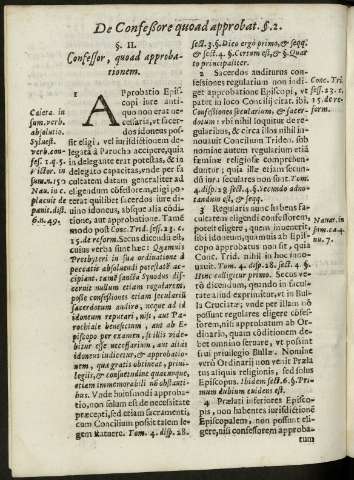 De Confessore quoad approbat. §. 2.
§. II.
Confessor, quoad approba-
tionem.
1 APprobatio Epis-
copi iure anti-
quo non erat ne-
cessaria, vt sacer-
dos idoneus pos-
sit eligi, vel iurisdictionem de-
legatā à Parocho accipere, quia
in delegante erat potestas, & in
delegato capacitas, unde per fa-
cultatem datam generaliter ad
eligendum cōfessorem, eligi po-
terat quilibet sacerdos iure di-
uino idoneus, absque alia cōdi-
tione, aut approbatione. Tamē
modo post Conc. Trid. sess. 23. c.
15. de reform. Secus dicendū est,
cuius verba sunt hæc: Quamuis
Presbyteri in sua ordinatione à
peccatis absoluendi potestatē ac-
cipiant, tamē sancta Synodus dis-
cernit nullum etiam regularem,
posse confessiones etiam sæculariū
sacerdotum audire, neque ad id
idoneum reputari, nisi, aut Pa-
rochiale beneficium, aut ab E-
piscopo per examen, si illis vide-
bitur esse necessarium, aut aliàs
idoneus iudicetur, & approbatio-
nem, quæ gratis obtineat, priui-
legiis, & consuetudine quacunque,
etiam immemorabili nō obstanti-
bus. Vnde huiusmodi approba-
tio, non solum est de necessitate
præcepti, sed etiam sacramenti,
cum Concilium possit talem le-
gem statuere. Tom. 4. disp. 28.
Caieta. in
sum. verb.
absolutio.
Syluest.
verb. con-
fess. 1. q. 5.
Victor. in
sum. n. 150
Nau. in c.
placuit de
pœnit. dist.
6. n. 49.
sect. 3. §. Dico ergò primo, & seqq.
& sect. 4. §. Certum est, & §. Quar
to principaliter.
2 Sacerdos auditurus con-
fessiones regularium non in di-
get approbatione Episcopi, vt
patet in loco Concilij citat. ibi.
Confessiones sæcularium, & sacer-
dotum: vbi nihil loquitur de re-
gularibus, & circa illos nihil in-
nouauit Concilium Tridon. sub
nomine autem regularium etiā
feminæ religiosæ comprehen-
duntur, quia ille etiam secundū
iura sæculares non sunt. Tom.
4. disp. 28. sect. 4. §. Secundo admo-
nendum est, & seqq.
3 Regularis nunc habens fa-
cultatem eligendi confessorem,
poterit eligere, quem inuenerit,
sibi idoneum, quamuis ab Epis-
copo approbatus non sit, quia
Conc. Trid. nihil in hoc inno-
uauit. Tom. 4. disp. 28. sect. 4. §.
Ex quo colligitur primo. Secus ve-
rò dicendum, quando in sæcu-
lari eligit, vel priuilegium, vt in
Bulla Cruciatæ; unde per illam nō
possunt regulares eligere cōfes-
sorem, nisi approbatum ab Or-
dinario, quàm cōditionem de-
bet omnino seruare, vt possit su-
frui priuilegio Bullæ. Nomine
verò Ordinarij non venit Præla
tus aliquis religionis, sed solus
Episcopus. Ibidem sect. 6. §. Pri-
mum dubium euidens est.
4 Prælati inferiores Episco-
pis, non habentes iurisdictionē
Episcopalem, non possunt eli-
gere, nisi confessorem approba-
tum
Conc. Tri.
sess. 23. c.
15. de re-
form.
Nauar. in
sum. ca. 4.
nu. 7.